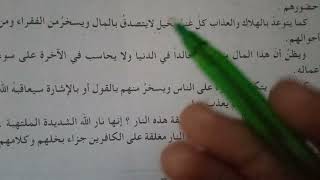 حضورهم .
كما يتوعد بالهلاك والعذاب كلَّ غني بخيلٍ لايتصدقُ بالمال ويسخرُ من الفقراء ومن
أحوالهم .
ويظنّ أن هذا المال خالداً في الدنيا ولا يحاسب في الآخرة على سوء
عماله .
على الناس ويسخرُ منهم بالقول أو بالإشارة سيعاقبهُ الله
يعذب
هذه النار ؟ إنها نار الله الشديدة الملتهبة
النار مغلقة على الكافرين جزاء بخلهم وكلامهم